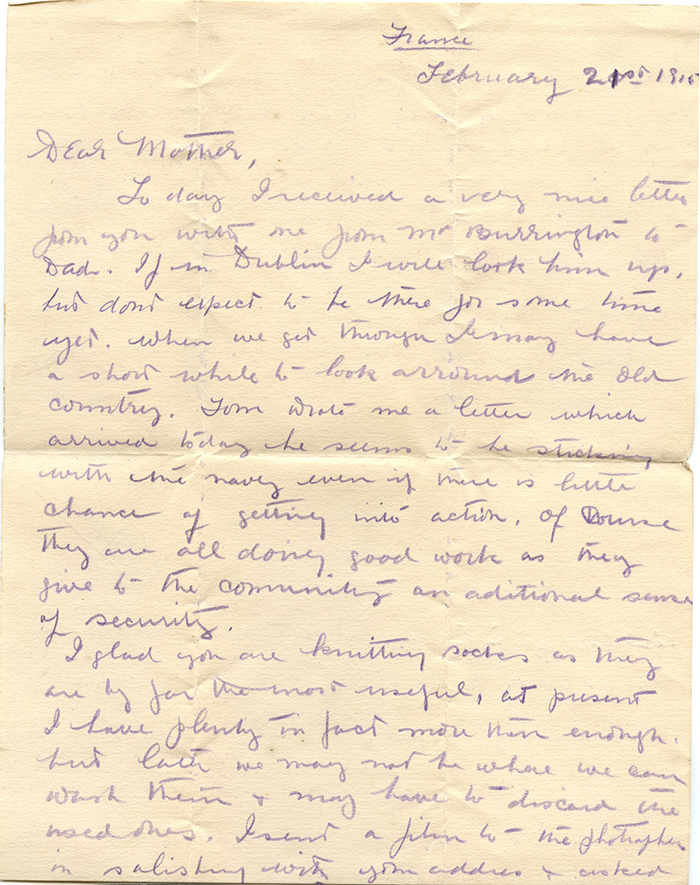 France
February 21st 1915
Dear Mother,
To day I received a very nice letter
from you with one from Mr Burrington to
Dad. If in Dublin I will look him up,
but dont expect to be there for some time
yet. when we get through I may have
a short while to look arround the Old
country. Tom wrote me a letter which
arrived today he seems to be sticking
with the navey even if there is little
chance of getting into action. Of Course
they are all doing good work as they
give to the community an aditional sense
of security.
I glad you are knitting socks as they
are by far the most useful, at present
I have plenty in fact more than enough.
but latter we may not be where we can
wash them & may have to discard the
used ones. I sent a film to the photrapher
in salisbury with your address & asked